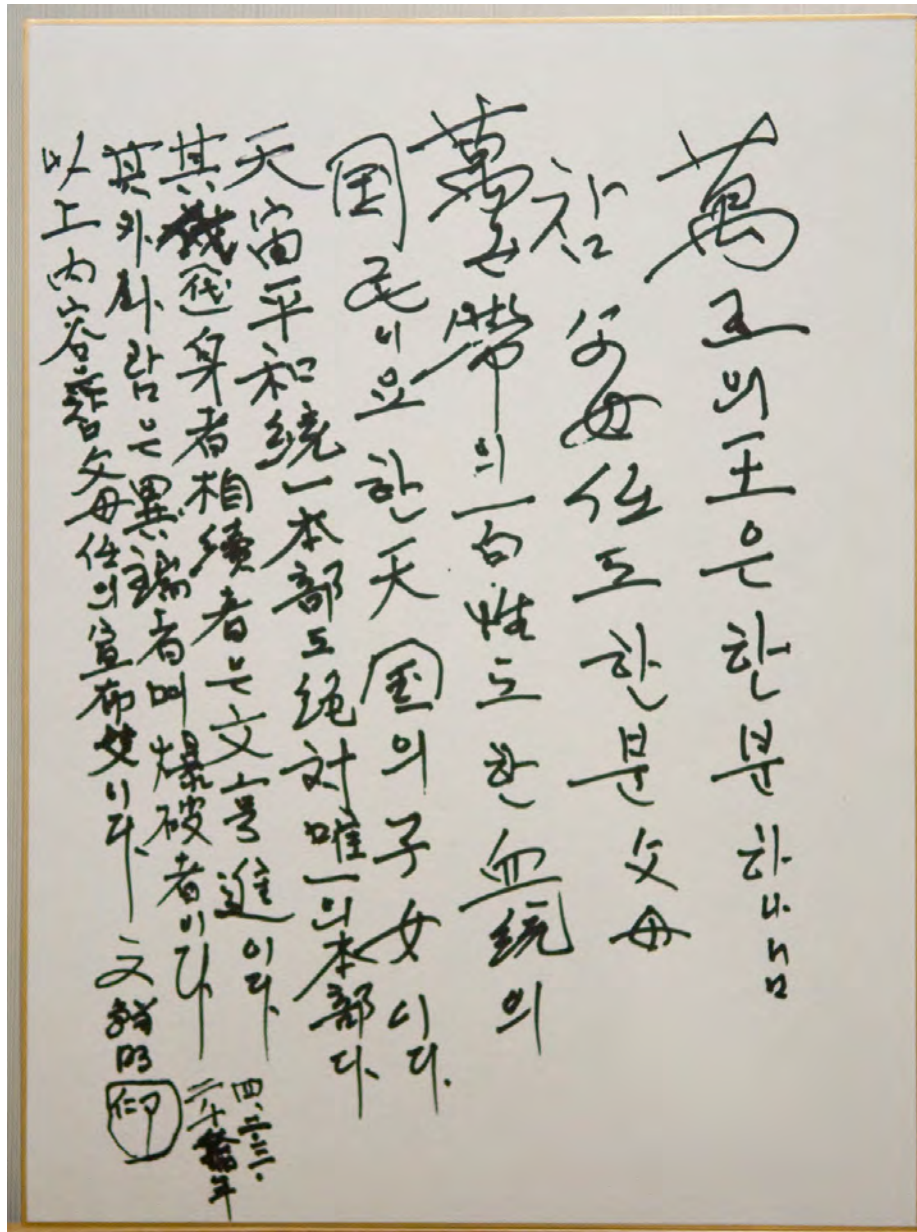 萬王의王은한분하나님
참父母任도한분父母
萬世帶의百性도한血統의
国民이요한天国의子女이다.
天宙平和統一本部도絶対唯一의本部다.
其 身者相續者는文亨進이다.
其外사람은異端者며爆破者이다.
以上内容은참父母任의宣布文이다. 文鮮明 印
四.二三.
二千 年